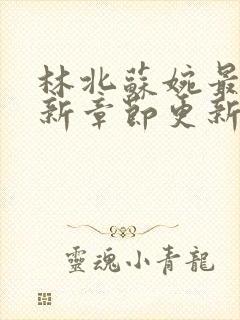 林北蘇婉最
新章節更新
靈魂小青龍